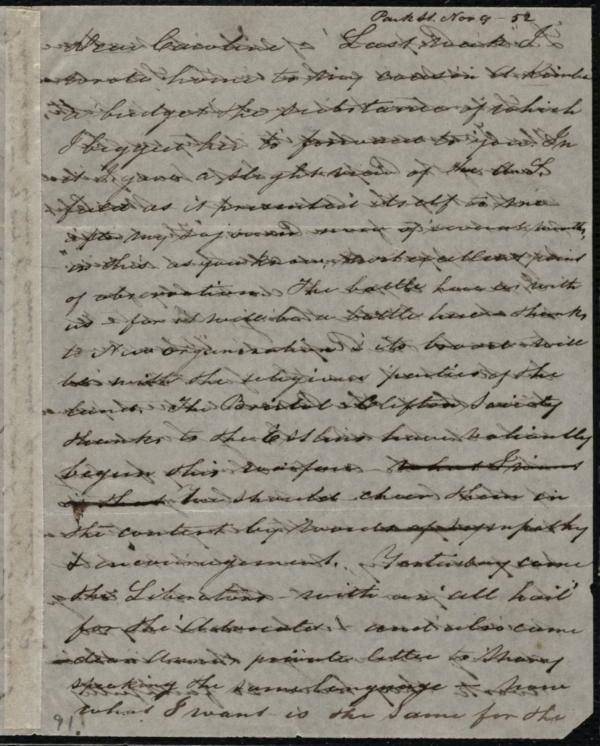 Park St. Nov 9 - 52
Dear Caroline Last week I
wrote home to my cousin A
a budget the substance of which
I begged her to forward to you. In
it I gave a slight view of the A.S.
field as it presented itself to me
after my sojourn now of several months,
in this as you know, most excellent point
of observation. The battle here as with
us - for it will be a battle here thanks
to New organization & its brood will
be with the religious parties of the
land. The Bristol & Clifton Society
thanks to the Estlins have valiantly
begun this warfare - what I want
is that we should cheer them in
the contest by words of sympathy
& encouragement. Yesterday came
the Liberators - with an 'all hail'
for the Advocate & and also came
dear private letter to Mary
speaking the same language - now
what I want is the same for the
91